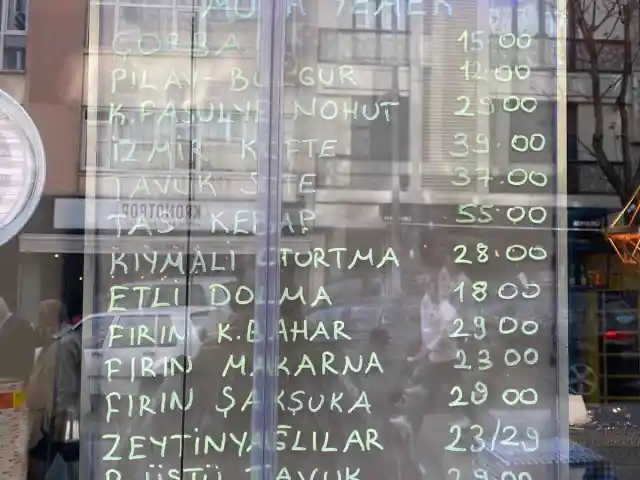 ÇORBA 15.00
PİLAV-BULGUR 12.00
K.FASULYE NOHUT 29.00
İZMİR KÖFTE 39.00
TAVUK SOTE 37.00
TAS KEBAP 55.00
KIYMALI OTURTMA 28.00
ETLİ DOLMA 18.00
FIRIN K.BAHAR 29.00
FIRIN MAKARNA 23.00
FIRIN ŞAKŞUKA 29.00
ZEYTİNYAĞLILAR 23/29
P. ÜSTÜ TAVUK 29.00
KRONOTROP